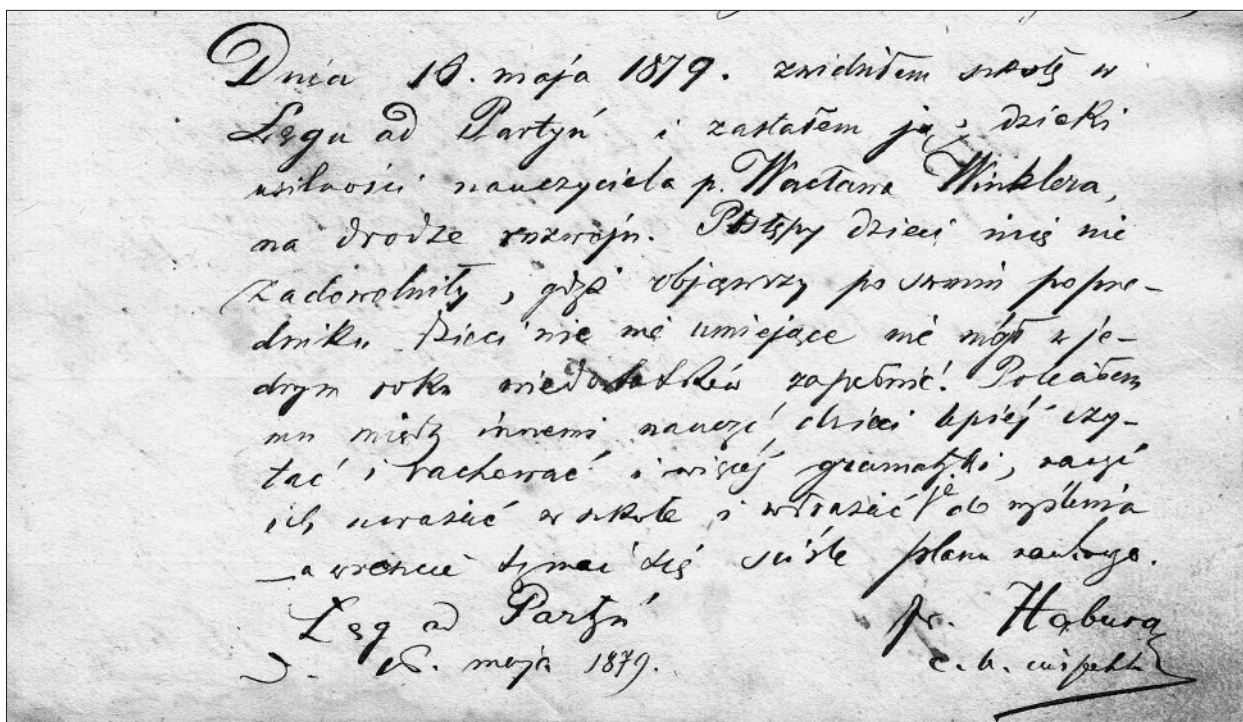 Dnia 16. maja 1879. zwidziłem szkołę w
Łęgu ad Partyń i zastałem ją, dzięki
usilności nauczyciela p. Wacława Winklera,
na drodze rozwoju. Postępy dzieci mię nie
zadowolniły, gdyż objąwszy po swoim poprze-
dniku dzieci nic nie umiejące nie mógł w je-
dnym roku niedostatków zapełnić. Poleciłem
mu między innemi nauczyć dzieci lepiej czy-
tać i rachować i więcej gramatyki, nauczyć
ich uważać w szkole i wdrażać je do myślenia
a wreszcie trzymać się ściśle planu naukowego.
Łęg ad Partyń
D. 16. maja 1879.
Fr. Habura
c. k. inspektor